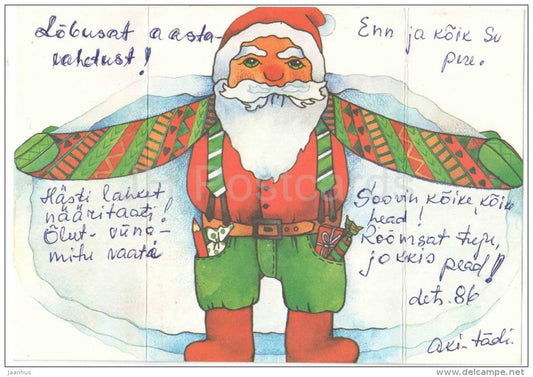 Lõbusat aasta-
vahetust!
Enn ja kõik Su
pere.
Hästi lahket
nääritaati!
Õlut- viina-
mitu vaati
Soovin kõike, kõike
head!
Rõõmsat tuju,
jokkis
pead!
dets. 86
Aki-tädi.
Postcards
jaanhus
www.delcampe.net